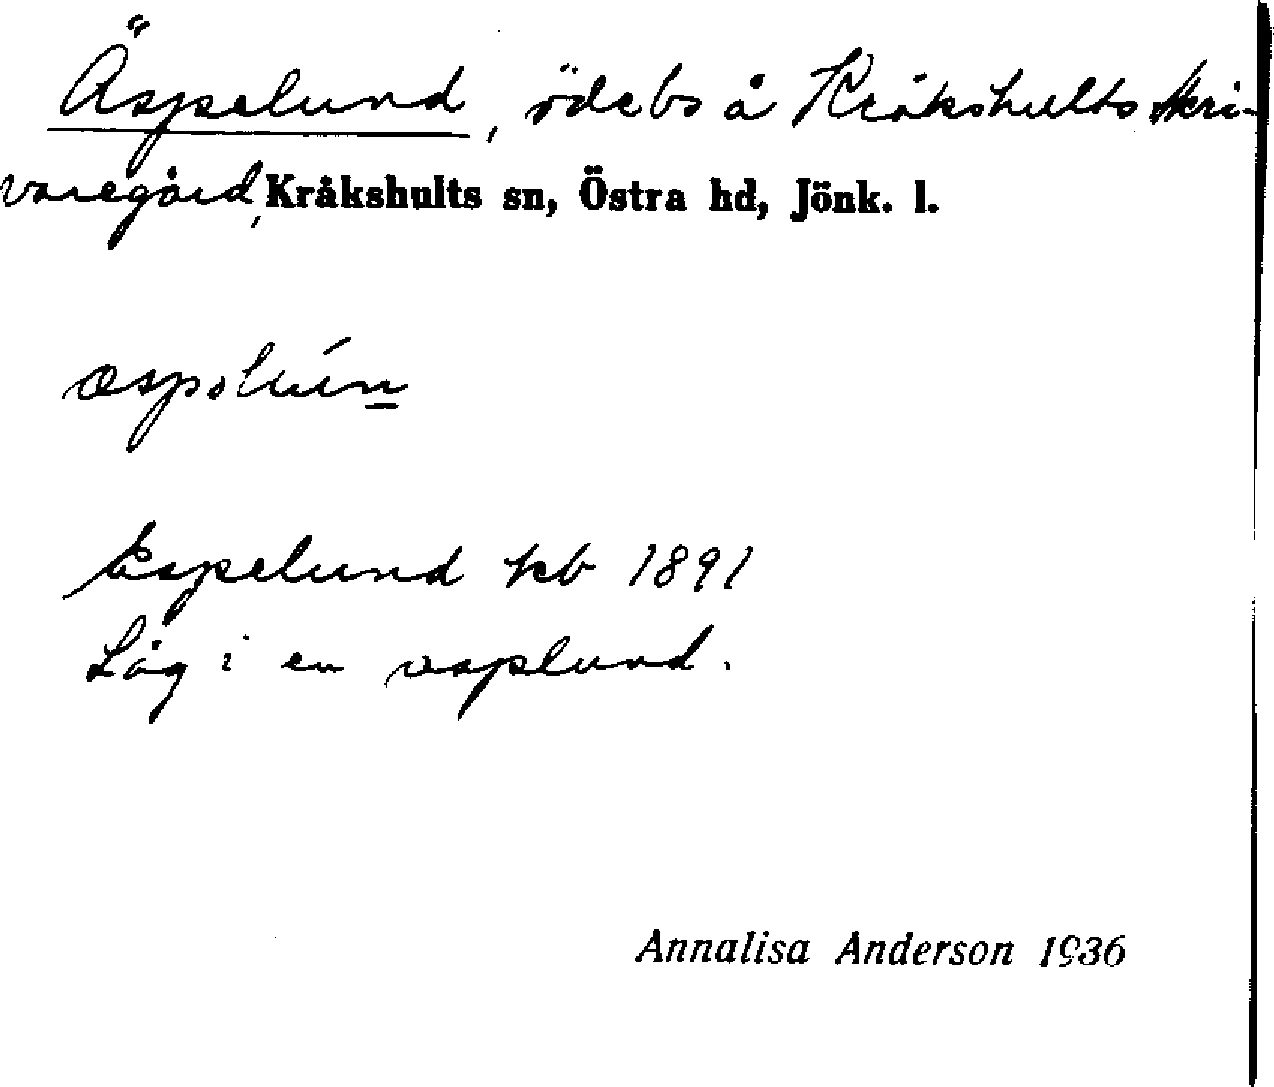 Äspelund, ödebs å Kråkshults Skri-
varegård, Kråkshults sn, Östra hd, Jönk. l.
æspəlún
Espelund kb 1891
Låg i en asplund.
Annalisa Anderson 1936